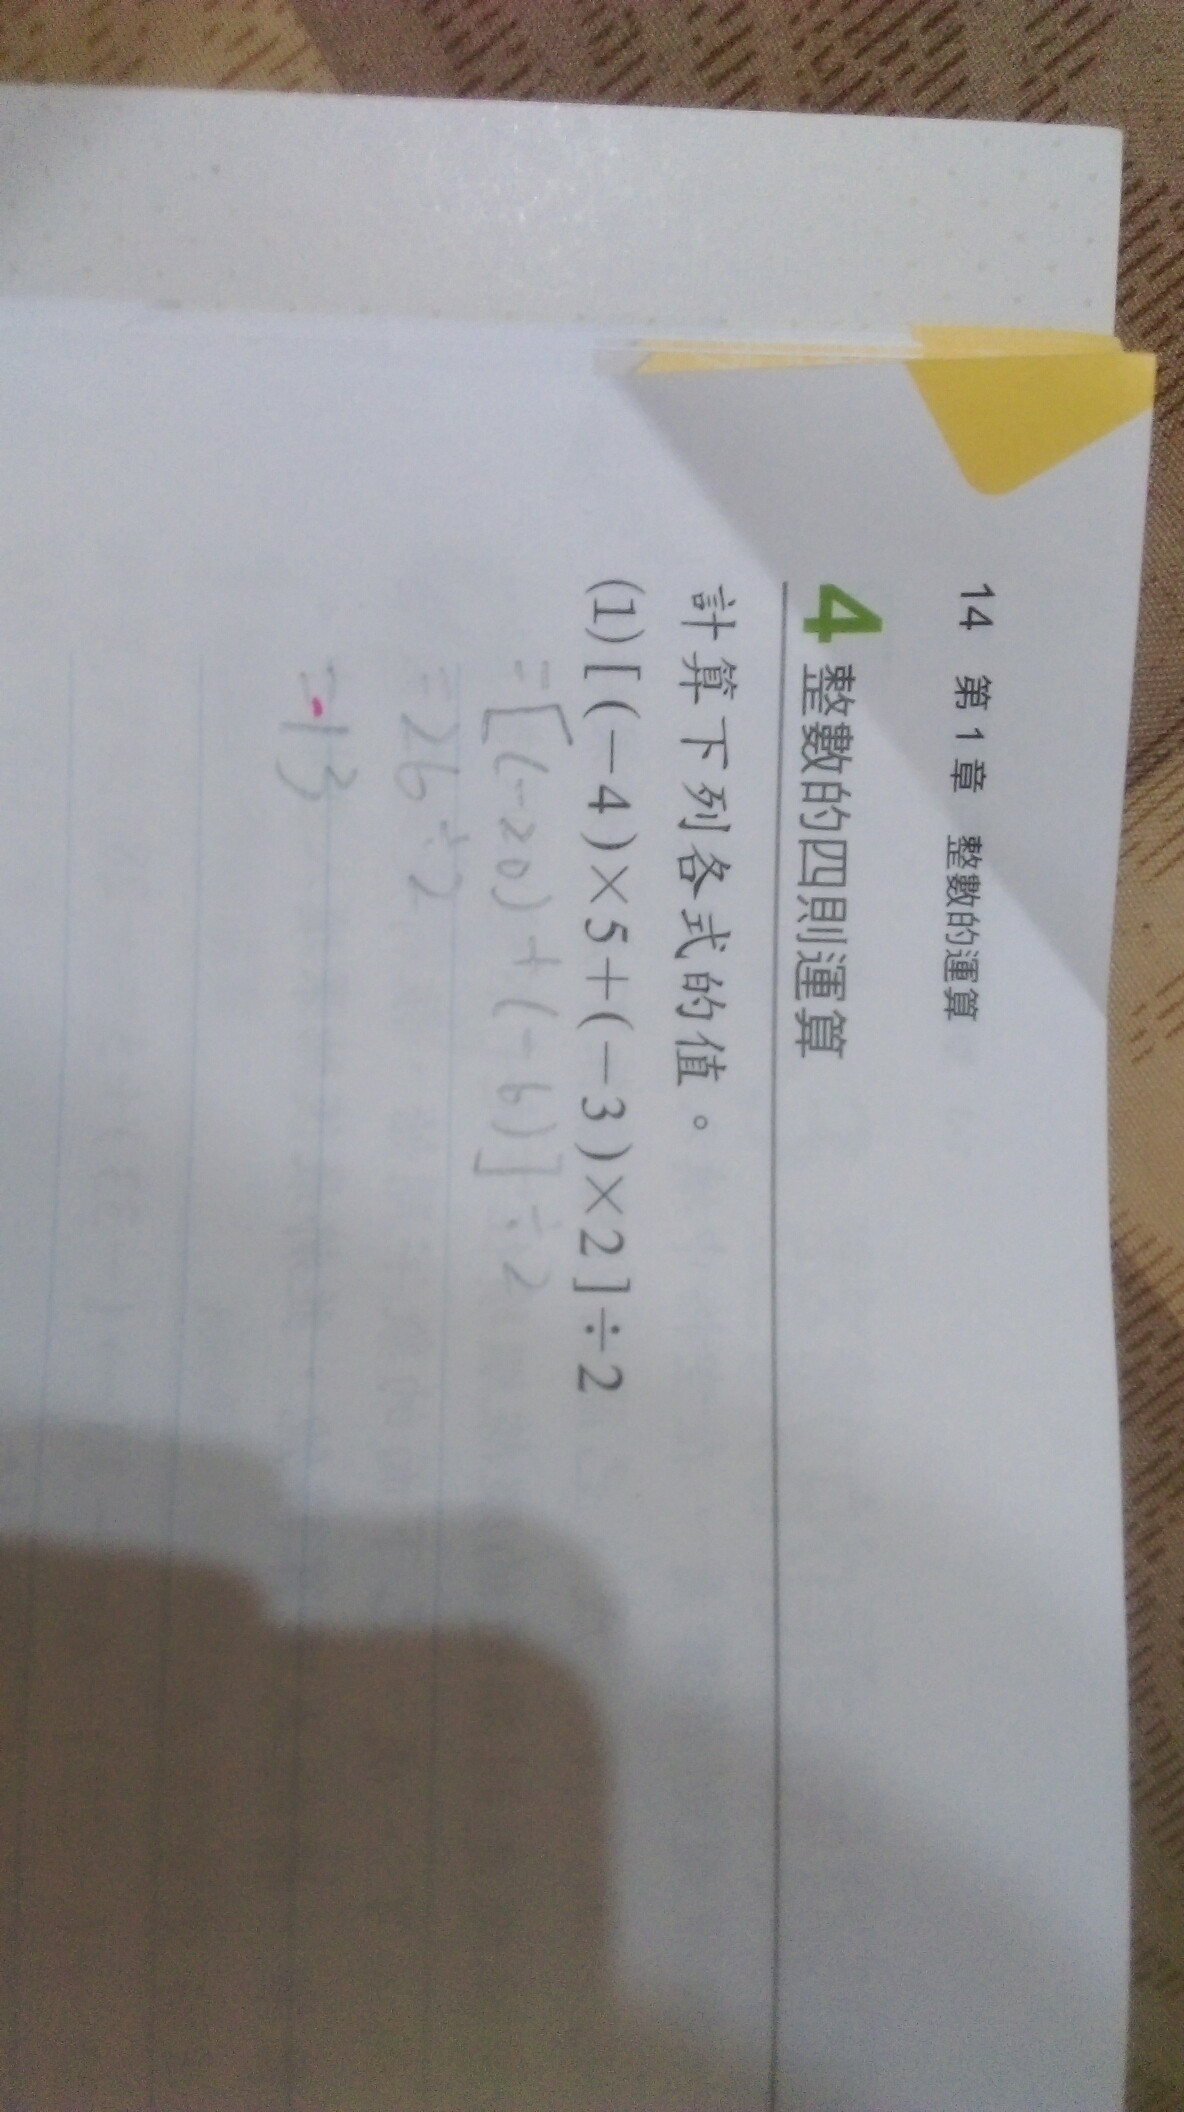 14 第1章 整數的運算
4 整數的四則運算
計算下列各式的值。
(1)[(−4)×5+(−3)×2]÷2
=[(-20)+(-6)]÷2
=26÷2
=-13